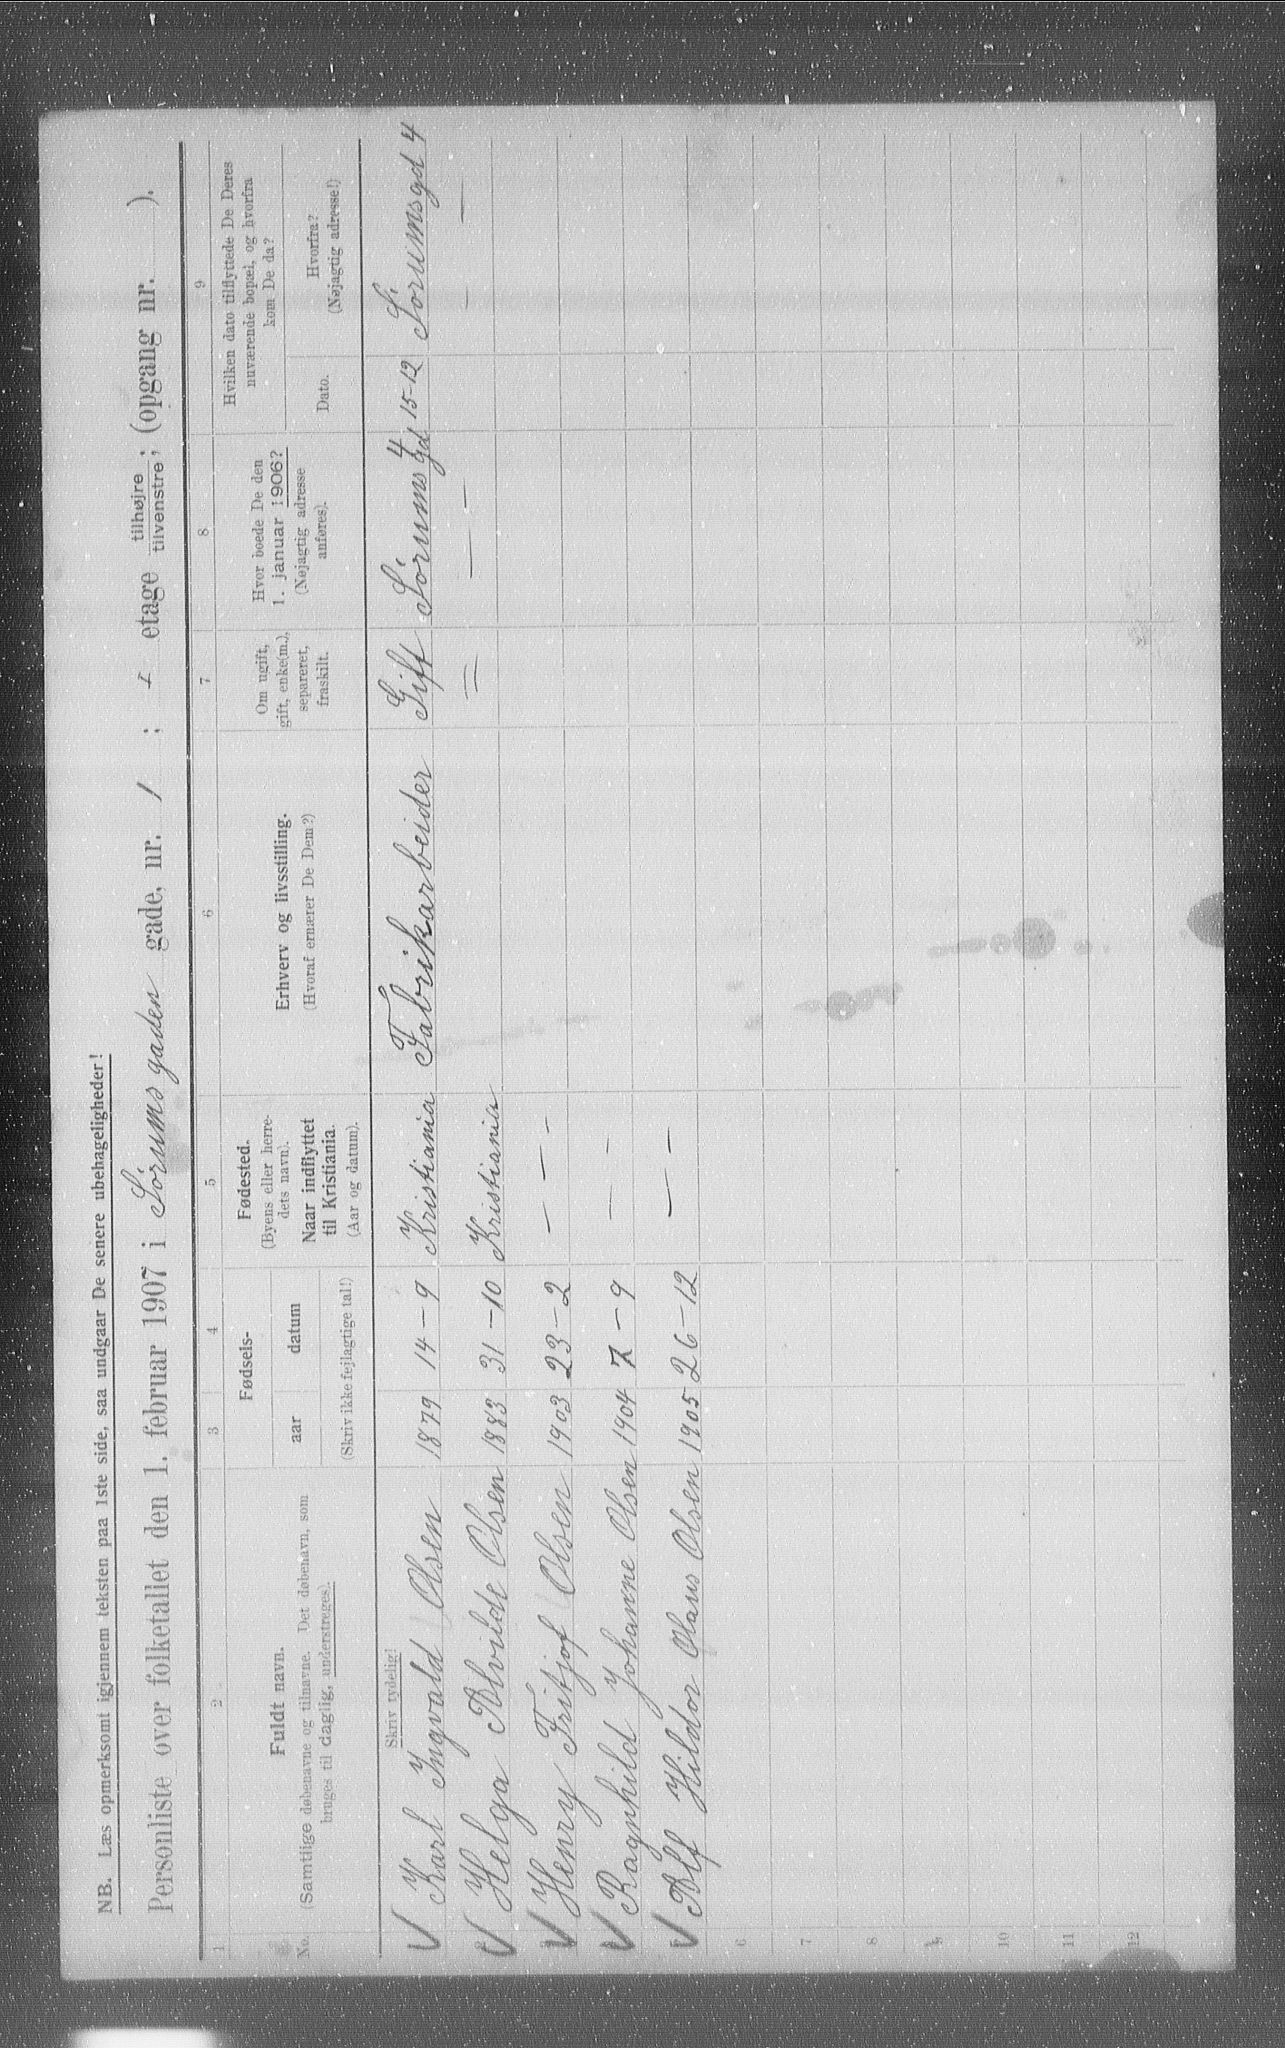 NB. Læs opmerksomt igjennem teksten paa 1ste side, saa undgaar De senere ubehageligheder!
Personliste over folketallet den 1. februar 1907 i Sórumsgaden gade, nr. 1 ; I etage tilhøjre ; (opgang nr. ).
tilvenstre,
1 2 3 4 5 6 7 8 9
No.
Fuldt navn.
(Samtlige døbenavne og tilnavne. Det døbenavn, som
bruges til daglig, understreges).
Fødsels-
aar datum
(Skriv ikke fejlagtige tal!)
Fødested.
(Byens eller herre-
dets navn).
Naar indflyttet
til Kristiania.
(Aar og datum).
Erhverv og livsstilling.
(Hvoraf ernærer De Dem?)
Om ugift,
gift, enke(m.),
separeret,
fraskilt.
Hvor boede De den
1. januar 1906?
(Nøjagtig adresse
anføres).
Hvilken dato tilflyttede De Deres
nuværende bopæl, og hvorfra
kom De da?
Dato.
Hvorfra?
(Nøjagtig adresse!)
Skriv tydelig!
V Karl Ingvald Olsen 1879 14-9 Kristiania Fabrikarbeider Gift Sórumsgd 4 15-12 Sórumsgd 4
V Helga Alvilde Olsen 1883 31-10 Kristiania = — — — —
V Henry Fritjof Olsen 1903 23-2 — — —
V Ragnhild Johanne Olsen 1904 7-9 — —
V Alf Hildor Olaus Olsen 1905 26-12 — —
6
7
8
9
10
11
12